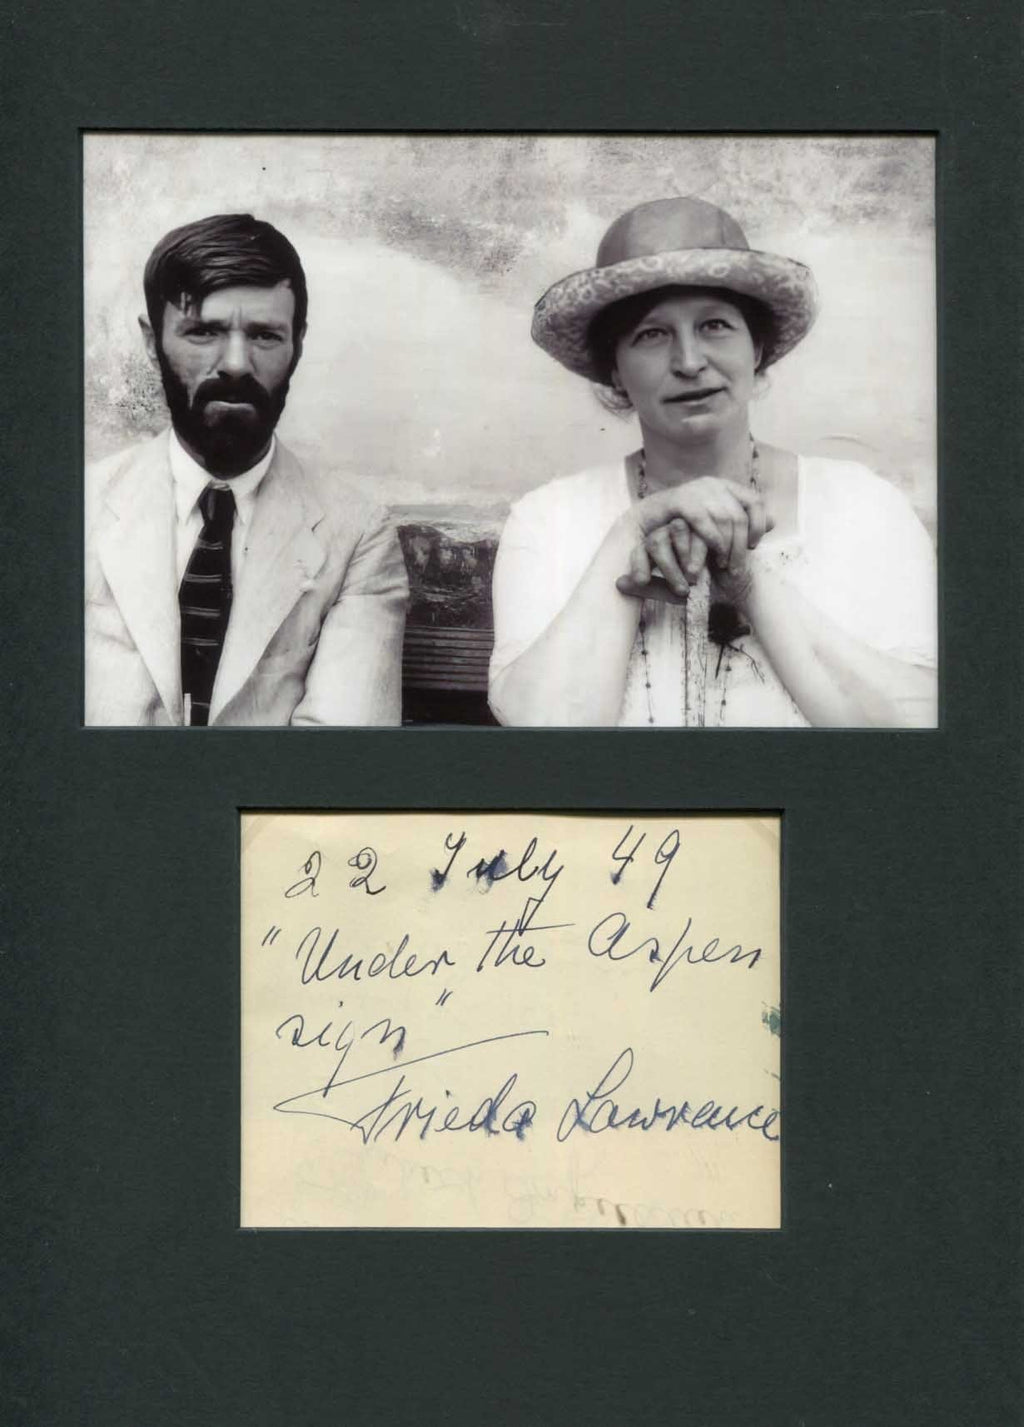 22 July 49
"Under the Aspen
sign"
Frieda Lawrence